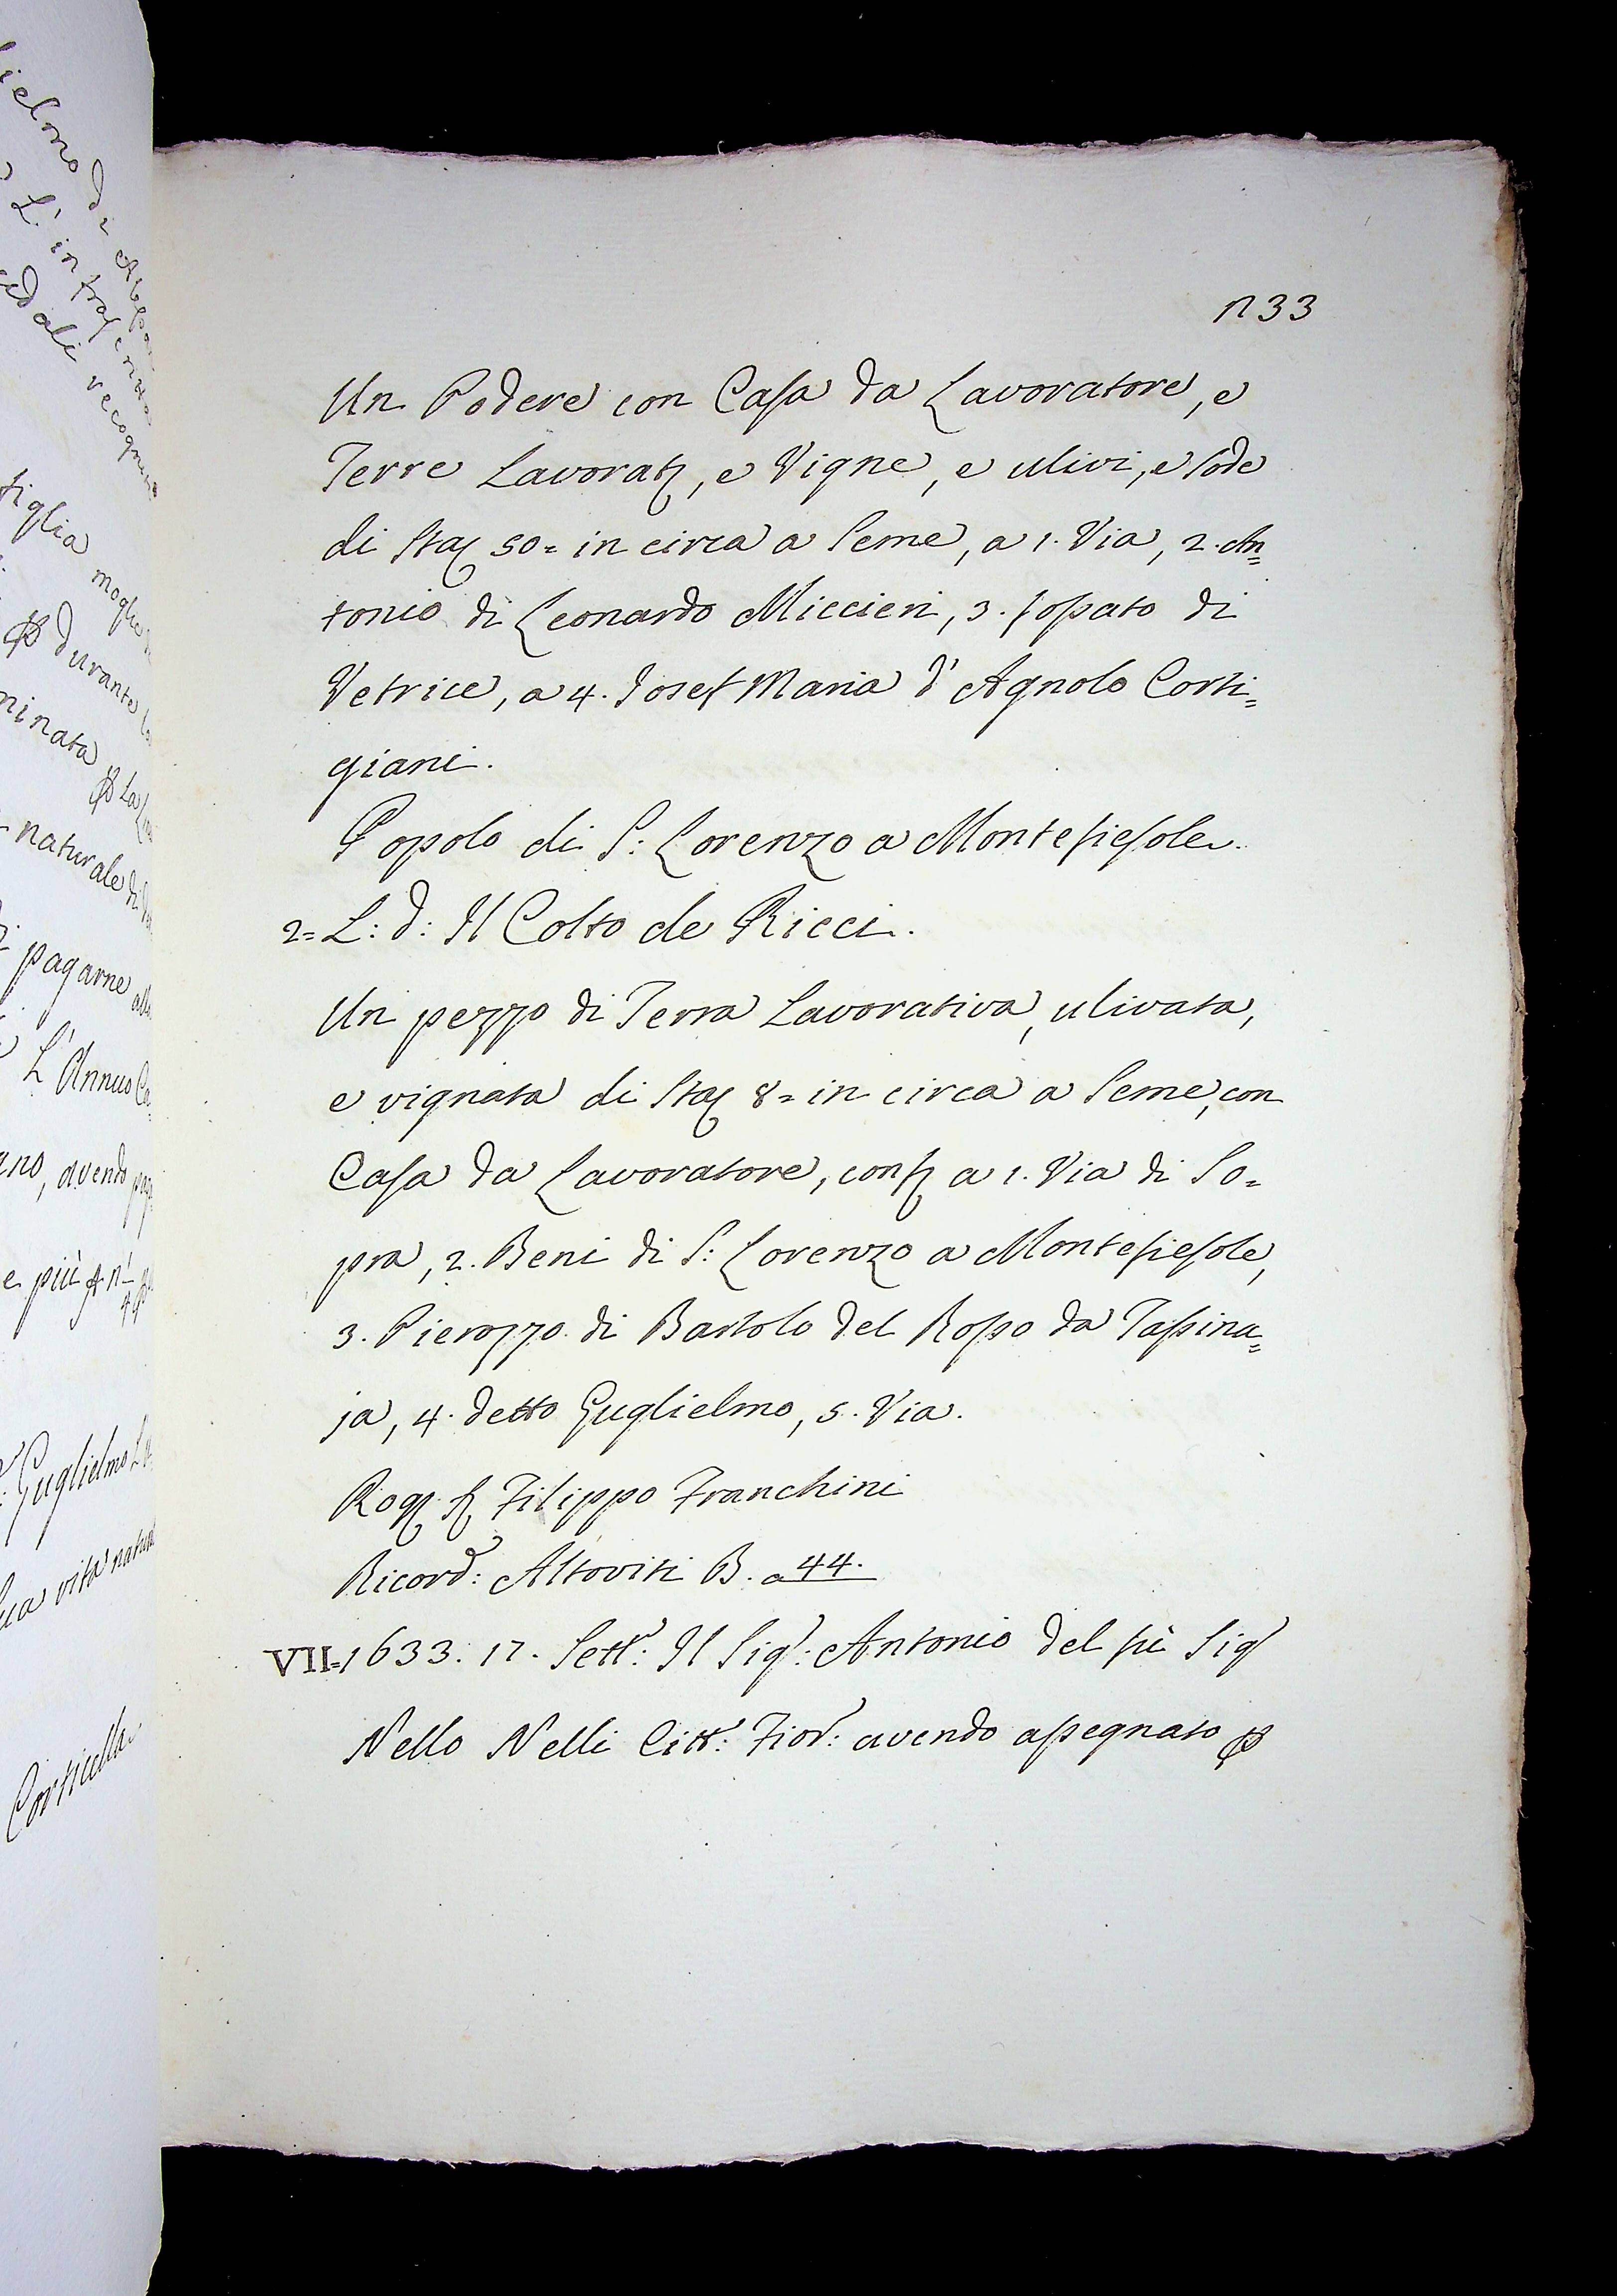 ielmo di
L' in fra
ed ali recogn
figlia moglie
durante
minata
naturale di
pagarne
L' Annuo
ano, avendo
e più
Guglielmo
sua vita
Corticella
1133
Un Podere con Casa da Lavoratore, e
Terre Lavorat, e Vigne, e ulivi, e Sode
di Sta 50= in circa a Seme, a 1. Via, 2. An=
tonio di Leonardo Miccieri, 3. fossato di
Vetrice, a 4. Josef Maria d' Agnolo Corti=
giani.
Popolo di S: Lorenzo a Montefiesole.
2= L: d: Il Colto de Ricci.
Un pezzo di Terra Lavorativa, ulivata,
e vignata di Sta 8= in circa a Seme, con
Casa da Lavoratore, conf a 1. Via di So=
pra, 2. Beni di S: Lorenzo a Montefiesole,
3. Pierozzo di Bartolo del Rosso da Tassina=
ja, 4. detto Guglielmo, 5. Via.
Rog S Filippo Franchini
Ricord: Altoviti B. a 44.
VII=1633. 17. Sett: Il Sig: Antonio del fù Sig
Nello Nelli Citt: Fior: avendo assegnato